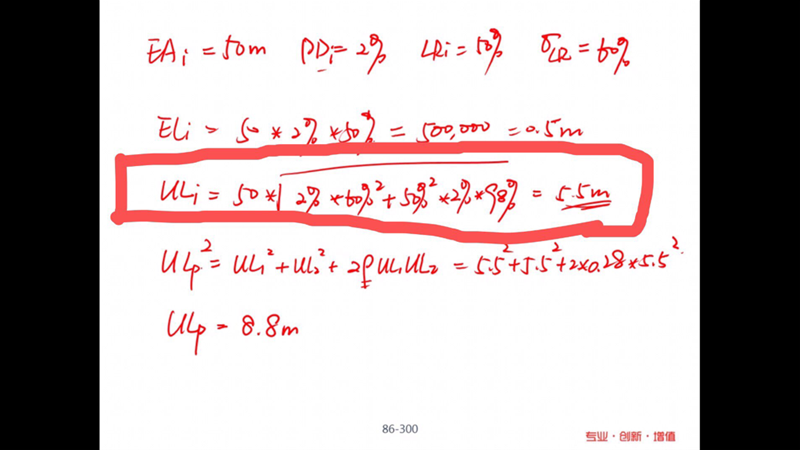 EAi = 50m PDi = 2% LRi = 50% σLR = 60%
ELi = 50 * 2% * 50% = 500,000 = 0.5m
ULi = 50 * √2% * 60%² + 50%² * 2% * 98% = 5.5m
ULp² = UL1² + UL2² + 2ρUL1UL2 = 5.5² + 5.5² + 2×0.28*5.5²
ULp = 8.8m
86-300
专业·创新·增值